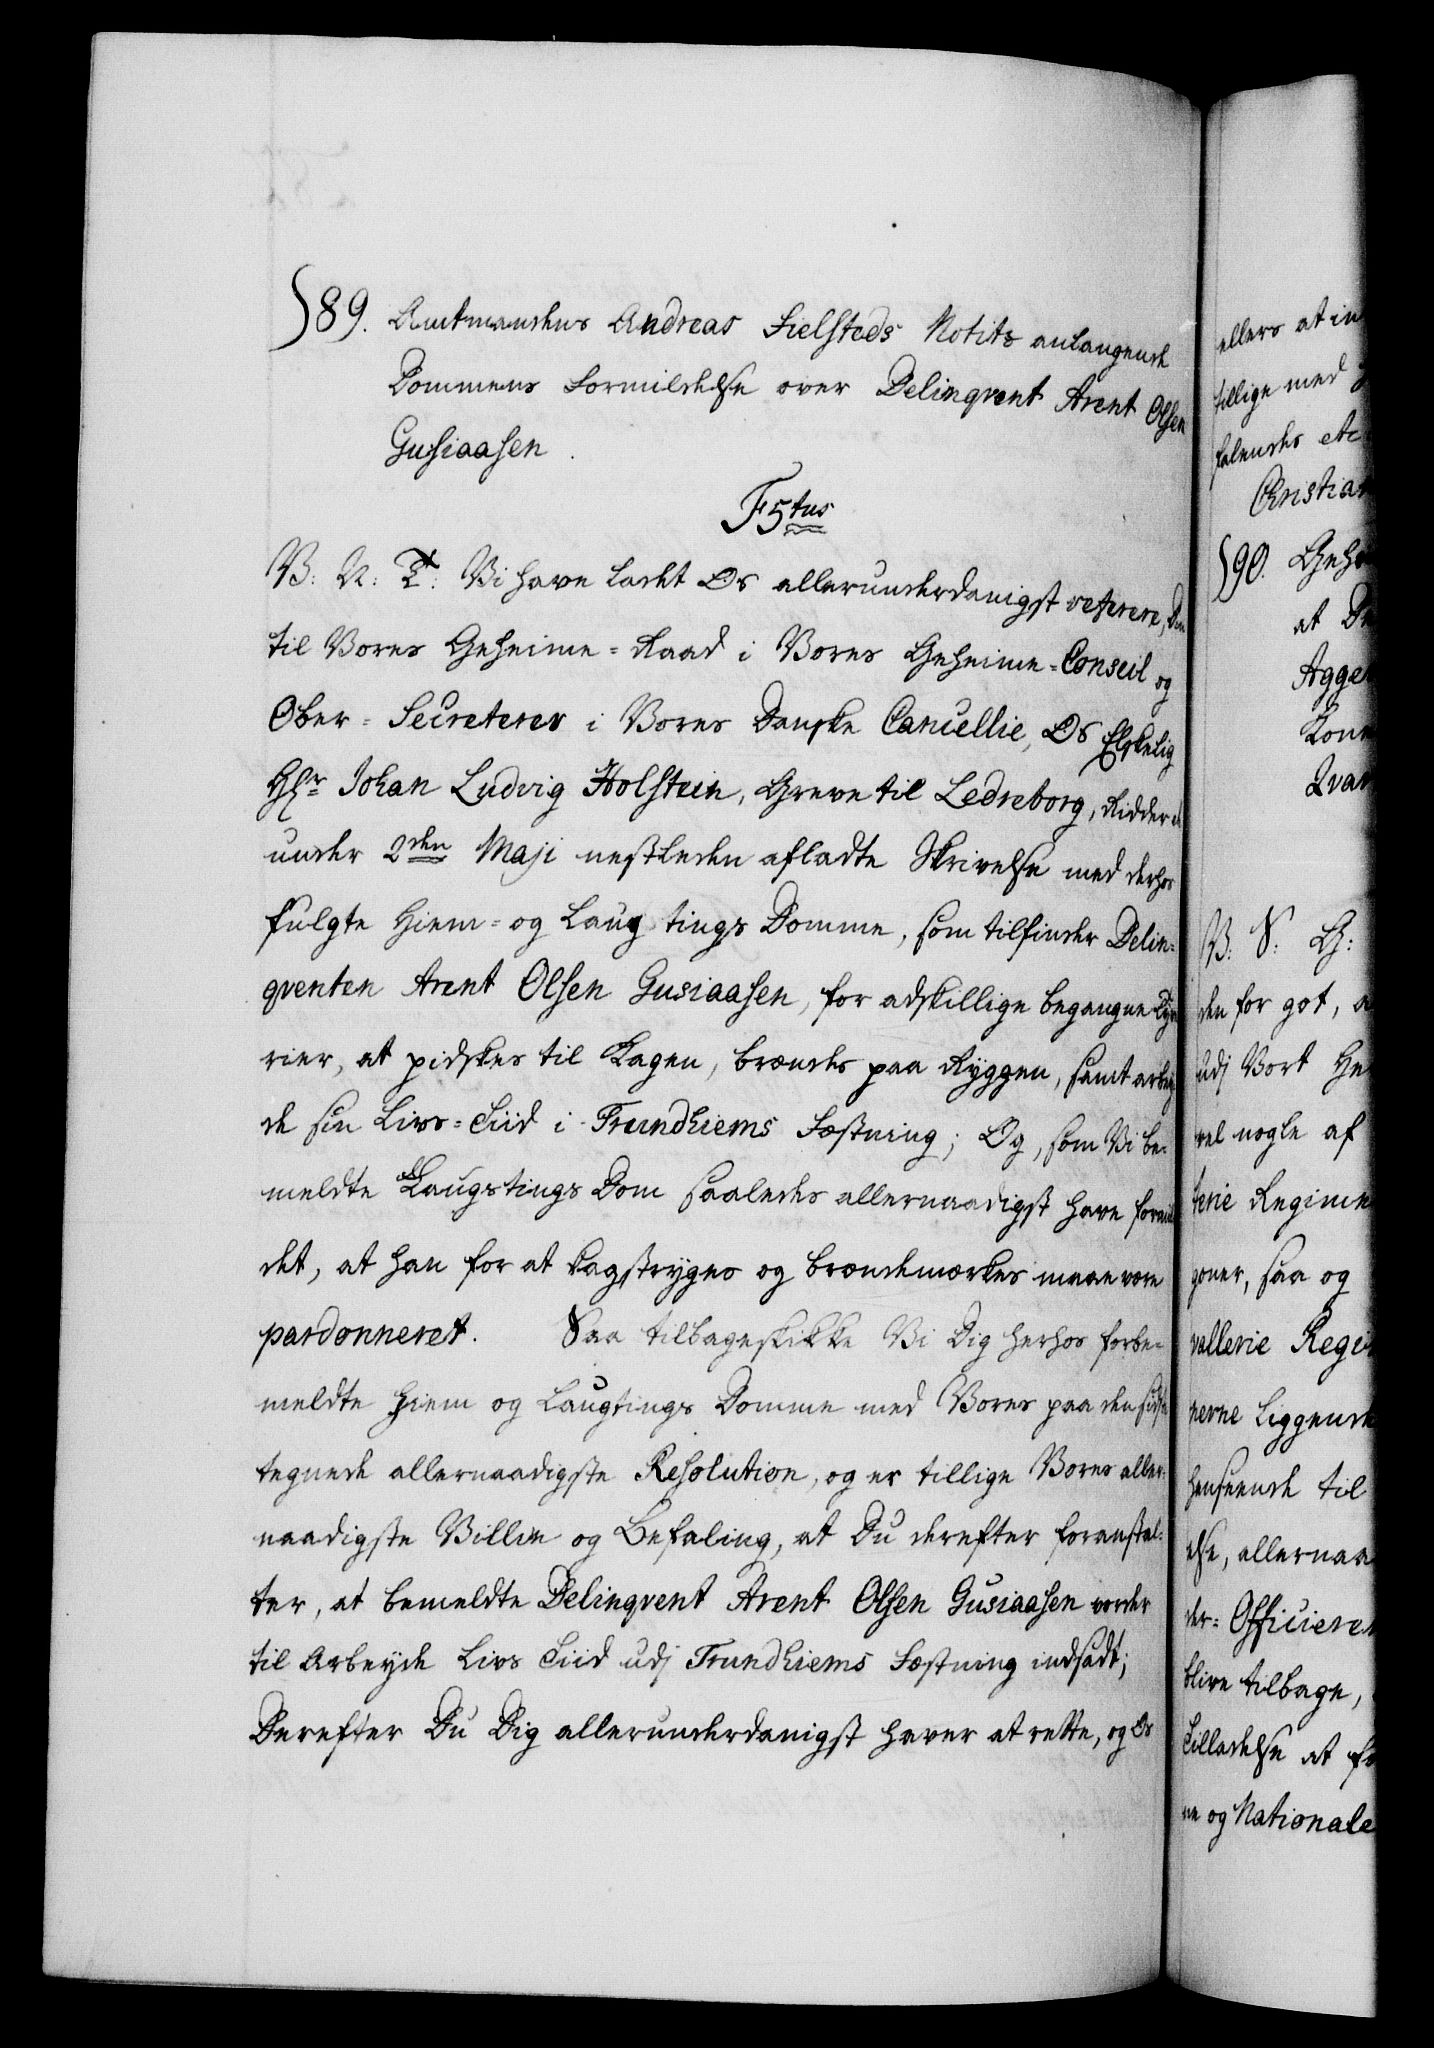 §89. Amtmandens Andreas Fielsteds Notits anlangende
Dommens Formildelse over Delinqvent Arent Olsen
Gusiaasen.
F5tus
V: A: T: Vi have ladet Os allerunderdanigst referere, Din
til Vores Geheime=Raad i Vores Geheime=Conseil og
Ober=Secreterer i Vores Danske Cancellie, Os Elskelig
Hr Johan Ludvig Holstein, Greve til Ledreborg, Ridder
under 2den Maji nestleden afladte Skrivelse med derhos
fulgte Hiem= og Laugtings Domme, som tilfinder Delin=
qventen Arent Olsen Gusiaasen, for adskillige begangne Tyve
rier, at pidskes til Kagen, brændes paa Ryggen, samt arbey
de sin Livs=Tiid i Trundhiems Fæstning; Og, som Vi be=
meldte Laugstings Dom saaledes allernaadigst have formil
det, at han for at kagstryges og brændemærkes maae være
pardonneret. Saa tilbageskikke Vi Dig herhos forbe=
meldte Hiem og Laugtings Domme med Vores paa den sidste
tegnede allernaadigste Resolution, og er tillige Vores aller=
naadigste Villie og Befaling, at Du derefter foranstal=
ter, at bemeldte Delinqvent Arent Olsen Gusiaasen vorder
til Arbeyde Livs Tiid udj Trundhiems Fæstning indsadt;
Derefter Du Dig allerunderdanigst haver at rette, og Os
ellers at in
tillige med
falendes etc
Christian
§90. Gehe
at
Agge
Kon
Qvar
V: S: G:
den for got, a
udj Vort He
vel nogle af
terie Regime
goner, saa og
vallerie Regi
nerne liggende
henseende til
else, allernaa
der=Officierer
blive tilbage,
Tilladelse at f
ne og Nationale